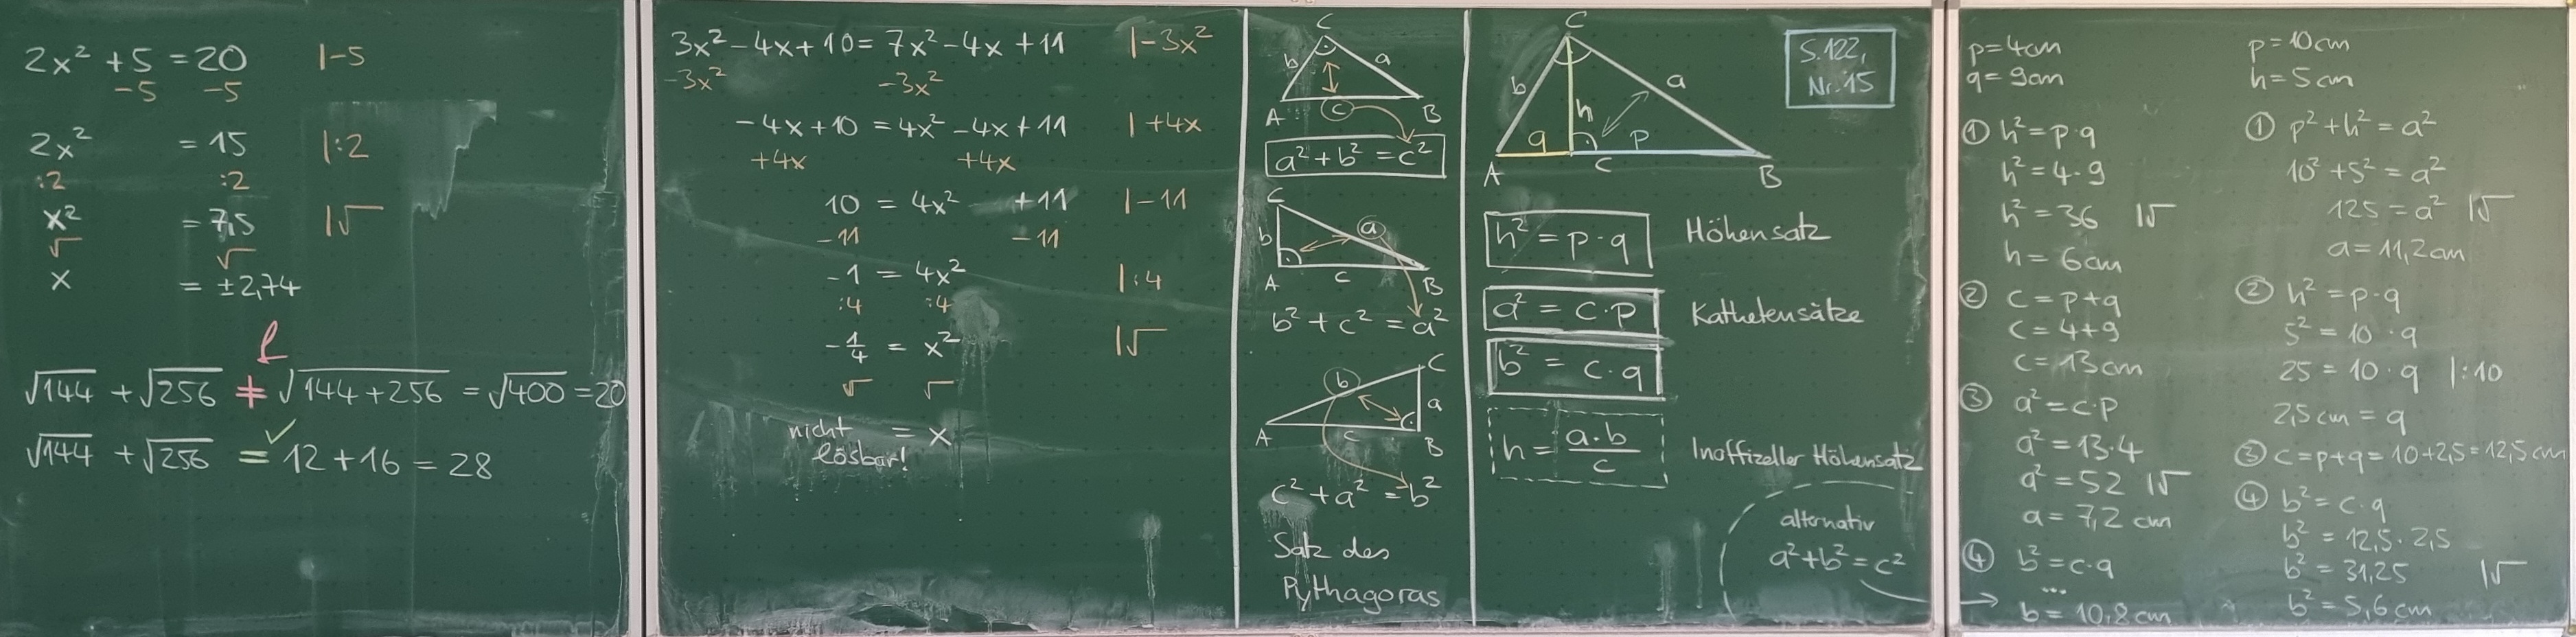 2x² + 5 = 20 |-5
-5 -5
2x² = 15 |:2
:2 :2
x² = 7,5 |√
√ √
x = ±2,74
√144 + √256 ≠ √144+256 = √400 = 20
√144 + √256 = 12 + 16 = 28
✓
3x² - 4x + 10 = 7x² - 4x + 11 |-3x²
-3x² -3x²
-4x + 10 = 4x² - 4x + 11 |+4x
+4x +4x
10 = 4x² +11 |-11
-11 -11
-1 = 4x² |:4
:4 :4
-1/4 = x² |√
√ √
nicht = x
lösbar!
C
b a
A c B
a² + b² = c²
C
b a
A c B
b² + c² = a²
C
b a
A c B
c² + a² = b²
Satz des
Pythagoras
C
b h a
q p
A c B
S.122,
Nr.15
h² = p·q Höhensatz
a² = c·p Kathetensätze
b² = c·q
h = a·b/c Inoffizeller Höhensatz
alternativ
a²+b²=c²
p=4cm
q=9cm
① h²=p·q
h²=4·9
h²=36 |√
h=6cm
② c=p+q
c=4+9
c=13cm
③ a²=c·p
a²=13·4
a²=52 |√
a=7,2cm
④ b²=c·q
...
b=10,8cm
p=10cm
h=5cm
① p²+h²=a²
10²+5²=a²
125=a² |√
a=11,2cm
② h²=p·q
5²=10·q
25=10·q |:10
2,5cm=q
③ c=p+q=10+2,5=12,5cm
④ b²=c·q
b²=12,5·2,5
b²=31,25 |√
b²=5,6cm